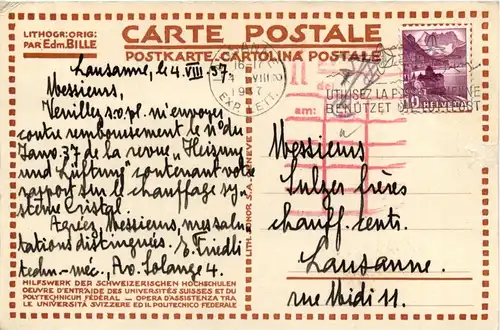 LITHOGR: ORIG:
PAR Edm. BILLE
CARTE POSTALE
POSTKARTE CARTOLINA POSTALE
Lausanne, le 4. VIII. 37.
Messieurs,
Veuillez s.v.pl. m'envoyer
contre remboursement le No du
Janv. 37 de la revue "Heizung
und Lüftung" contenant votre
rapport sur le chauffage sy-
stème Cristal.
Agréez, Messieurs, mes salu-
tations distinguées. E. Friedli
techn.-méc., Av. Solange 4.
HILFSWERK DER SCHWEIZERISCHEN HOCHSCHULEN
OEUVRE D'ENTRAIDE DES UNIVERSITÉS SUISSES ET DU
POLYTECHNICUM FÉDÉRAL – OPERA D'ASSISTENZA TRA
LE UNIVERSITÀ SVIZZERE ED IL POLITECNICO FEDERALE
LITH. SONOR S.A. GENÈVE
EXP. LETT.
am:
UTILISEZ LA POSTE AÉRIENNE
BENÜTZET DIE LUFTPOST
HELVETIA
Messieurs
Sulzer frères
chauff. centr.
Lausanne.
rue Midi 11.